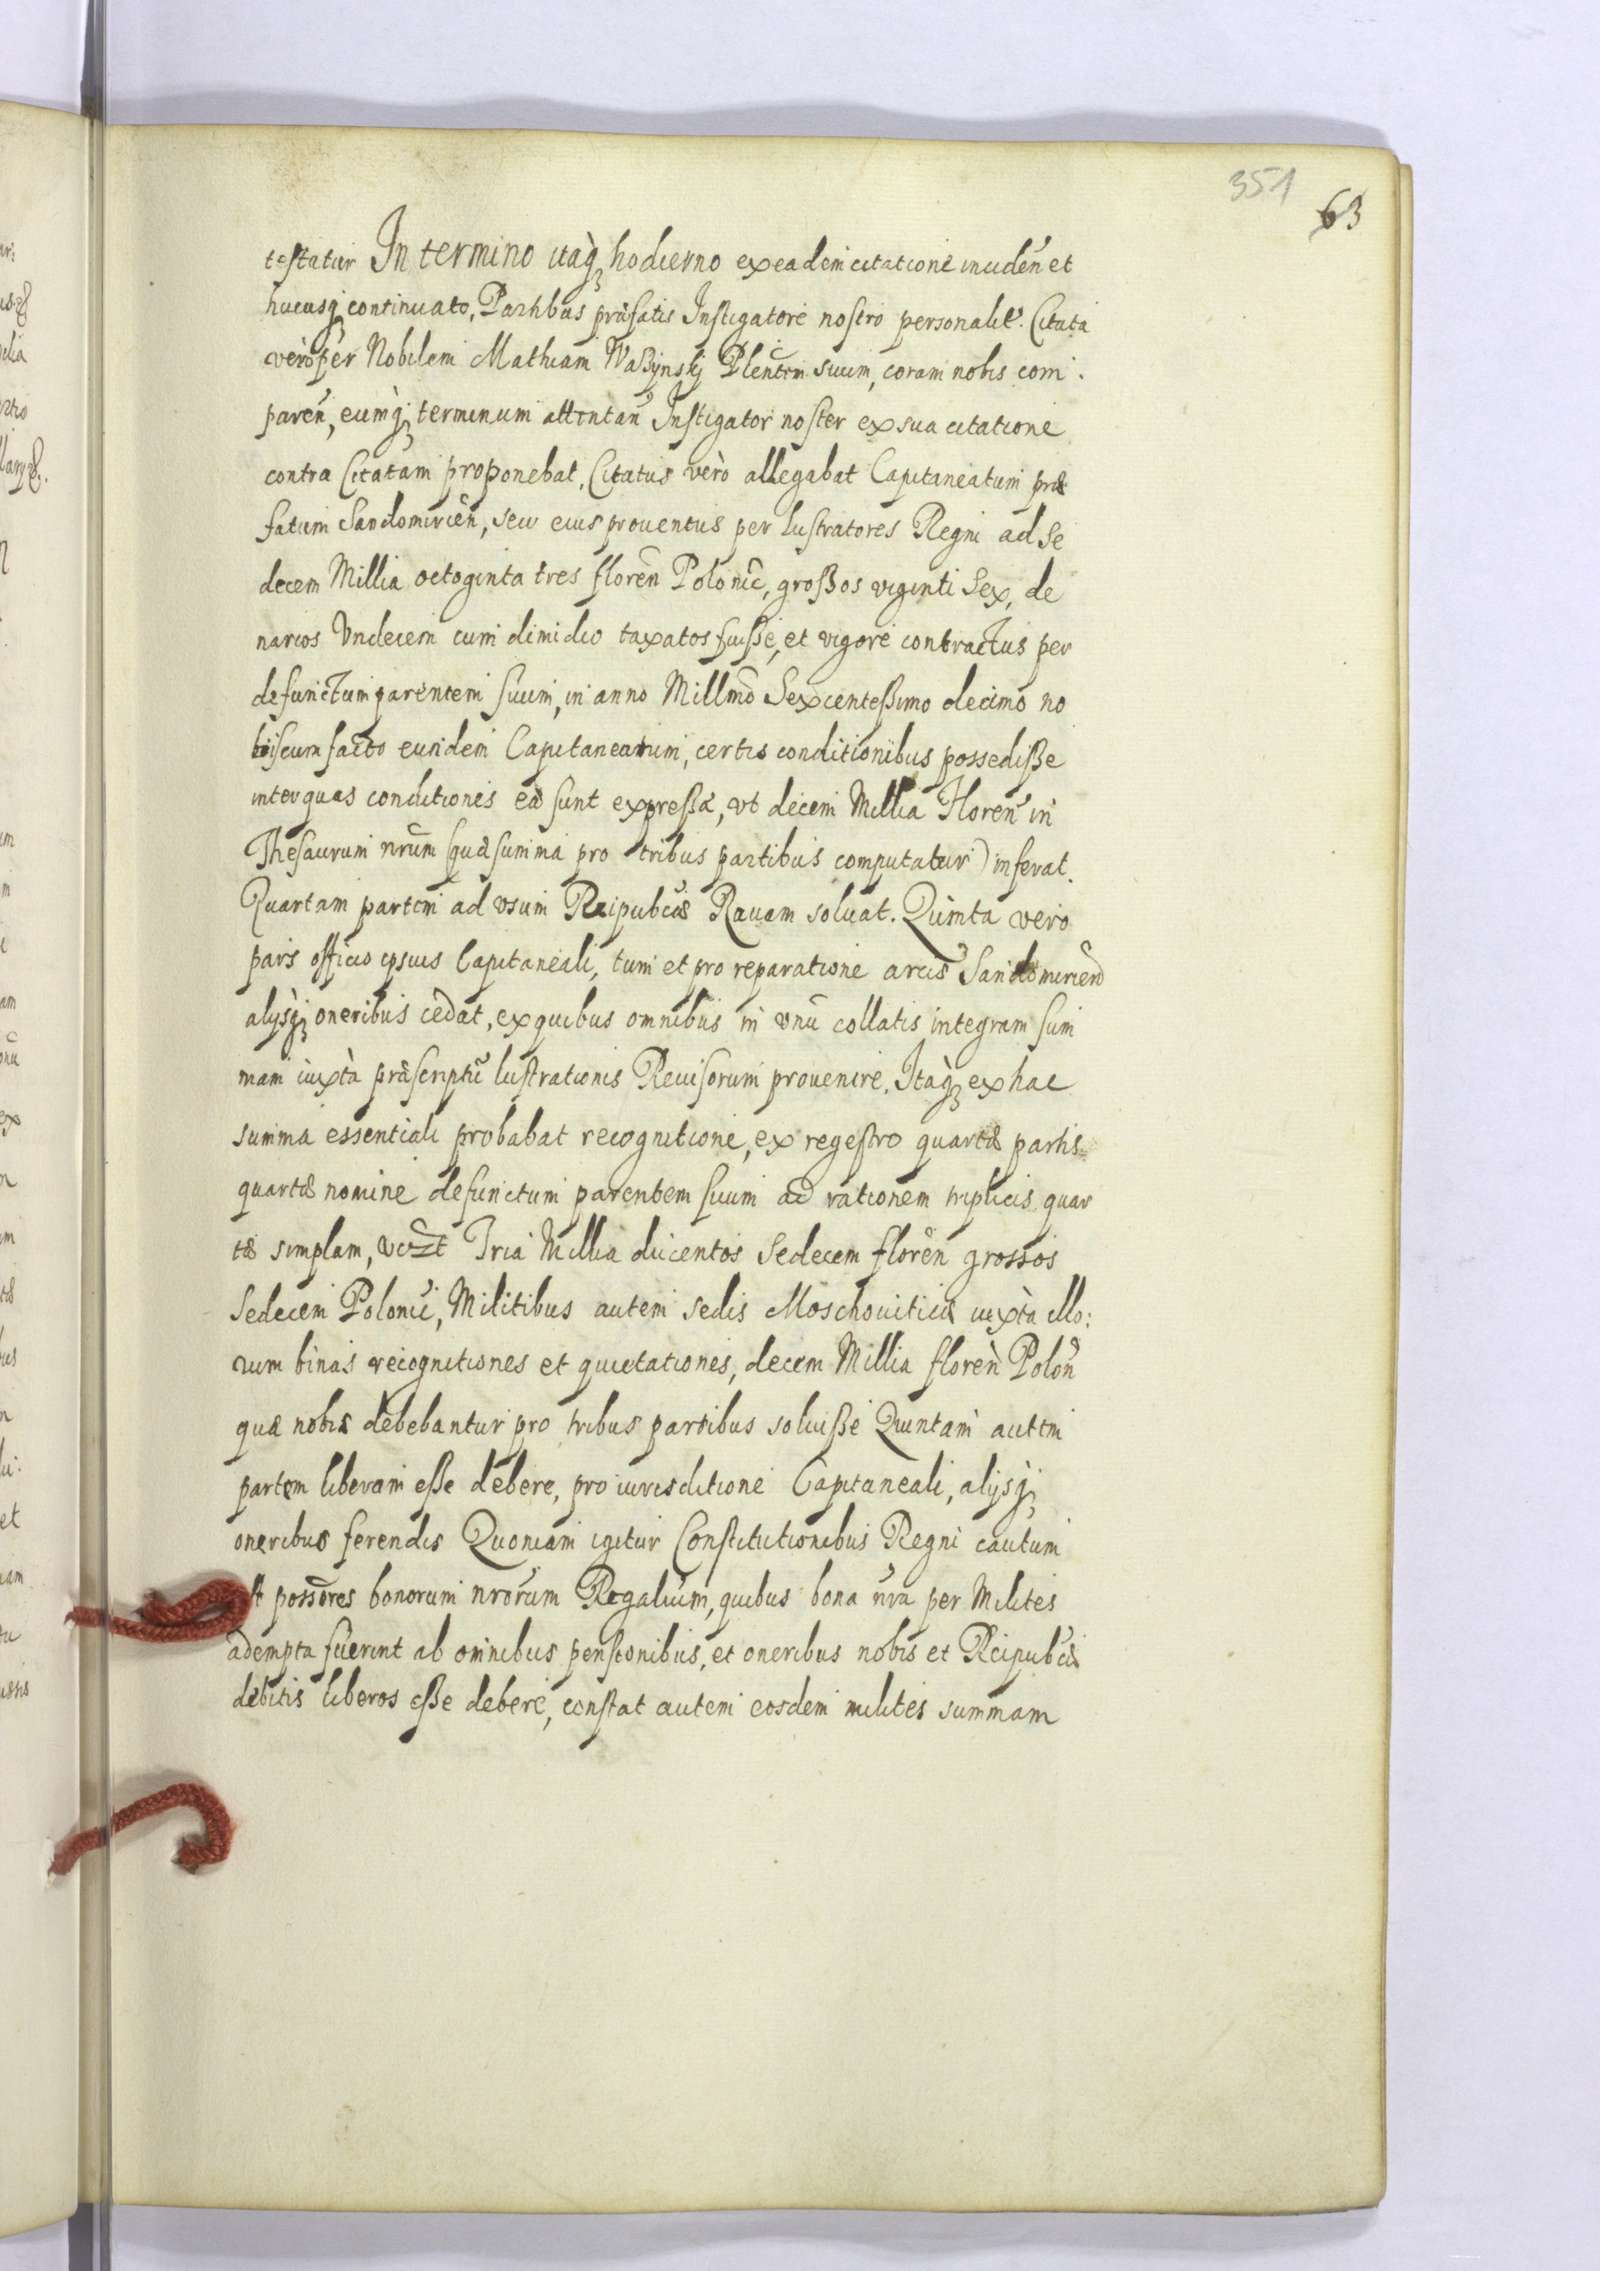 351
63
testatur In termino itaq̀ hodierno ex eadem citatione inciden̄ et
hucusq̨ continuato, Partibus præfatis Instigatore nostro personalit̄. Citata
verò per Nobilem Mathiam Waßÿnskj Plēntem suum, coram nobis com
paren̄, eumq̀ terminum attentan̄ Instigator noster ex sua citatione
contra Citatam proponebat, Citatus verò allegabat Capitaneatum præ
fatum Sandomirien̄, seu eius prouentus per lustratores Regni ad Se
decem Millia octoginta tres floren̄ Polonic̄, großos viginti Sex, de
narios Vndecem cum dimidio taxatos fuiße, et vigore contractus per
defunctum parentem suum, in anno Millm̄o Sexcenteßimo decimo no
biscum facto eundem Capitaneatum, certis conditionibus possediße
inter quas conditiones eæ sunt expreßæ, vt decem Millia Floren̄ in
Thesaurum nr̄um (quæ summa pro tribus partibus computatur) inferat.
Quartam partem ad vsum Reipubc̄æ Rauam soluat. Quinta vero
pars officio ipsius Capitaneali, tum et pro reparatione arcis Sandomirien̄
alijsq̀ oneribus cedat, ex quibus omnibus in vnū collatis integram sum
mam iuxtà præscriptū lustrationis Reuisorum prouenire. Itaq̀ ex hac
summa essentiali probabat recognitione, ex regestro quartæ partis
quartæ nomine defunctum parentem suum ad rationem triplicis quar
tæ simplam, vcz̄t Tria Millia ducentos Sedecem floren̄ grossos
Sedecem Polonic̄, Militibus autem sedis Moschouiticæ iuxtà illo:
rum binas recognitiones et quietationes, decem Millia floren̄ Polon̄
quæ nobis debebantur pro tribus partibus soluiße Quintam autem
partem liberam eße debere, pro iurisditione Capitaneali, alijsq̀
oneribus ferendis Quoniam igitur Constitutionibus Regni cautum
st posso͞res bonorum nr̄orum Regalium, quibus bona nr̄a per Milites
adempta fuerint ab omnibus pensionibus, et oneribus nobis et Reipubc̄æ
debitis liberos eße debere, constat autem eosdem milites summam